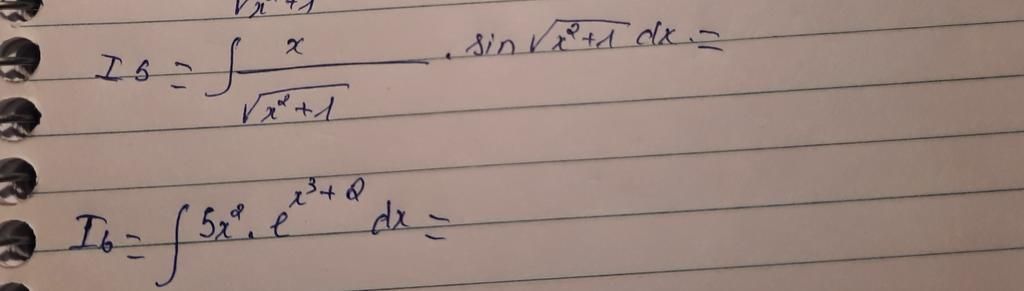 √x²+1
I5 = ∫ x/√x²+1 . sin √x²+1 dx =
I6 = ∫ 5x² . e^(x³+2) dx =